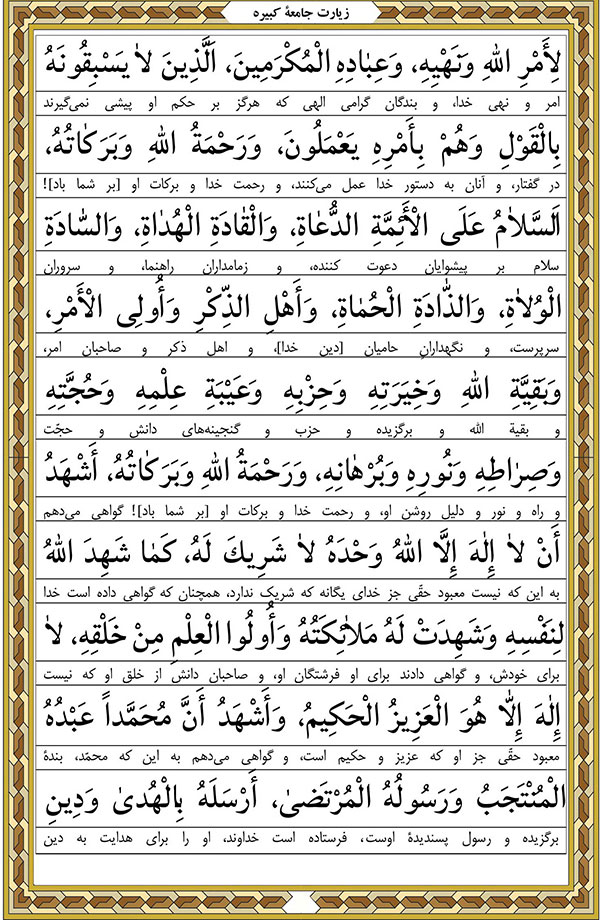 زیارت جامعهٔ کبیره
لِأَمْرِ اللّٰهِ وَنَهْيِهِ، وَعِبٰادِهِ الْمُكْرَمِينَ، اَلَّذِينَ لاٰ يَسْبِقُونَهُ
امر و نهی خدا، و بندگان گرامی الهی که هرگز بر حکم او پیشی نمی‌گیرند
بِالْقَوْلِ وَهُمْ بِأَمْرِهِ يَعْمَلُونَ، وَرَحْمَةُ اللّٰهِ وَبَرَكٰاتُهُ،
در گفتار، و آنان به دستور خدا عمل می‌کنند، و رحمت خدا و برکات او [بر شما باد]!
اَلسَّلاٰمُ عَلَى الْأَئِمَّةِ الدُّعٰاةِ، وَالْقٰادَةِ الْهُدٰاةِ، وَالسّٰادَةِ
سلام بر پیشوایان دعوت کننده، و زمامداران راهنما، و سروران
الْوُلاٰةِ، وَالذّٰادَةِ الْحُمٰاةِ، وَأَهْلِ الذِّكْرِ وَأُولِى الْأَمْرِ،
سرپرست، و نگهدارانِ حامیان [دین خدا]، و اهل ذکر و صاحبان امر،
وَبَقِيَّةِ اللّٰهِ وَخِيَرَتِهِ وَحِزْبِهِ وَعَيْبَةِ عِلْمِهِ وَحُجَّتِهِ
و بقیة الله و برگزیده و حزب و گنجینه‌های دانش و حجّت
وَصِرٰاطِهِ وَنُورِهِ وَبُرْهٰانِهِ، وَرَحْمَةُ اللّٰهِ وَبَرَكٰاتُهُ، أَشْهَدُ
و راه و نور و دلیل روشن او، و رحمت خدا و برکات او [بر شما باد]! گواهی می‌دهم
أَنْ لاٰ إِلٰهَ إِلَّا اللّٰهُ وَحْدَهُ لاٰ شَرِيكَ لَهُ، كَمٰا شَهِدَ اللّٰهُ
به این که نیست معبود حقّی جز خدای یگانه که شریک ندارد، همچنان که گواهی داده است خدا
لِنَفْسِهِ وَشَهِدَتْ لَهُ مَلاٰئِكَتُهُ وَأُولُوا الْعِلْمِ مِنْ خَلْقِهِ، لاٰ
برای خودش، و گواهی دادند برای او فرشتگان او، و صاحبان دانش از خلق او که نیست
إِلٰهَ إِلاّٰ هُوَ الْعَزِيزُ الْحَكِيمُ، وَأَشْهَدُ أَنَّ مُحَمَّداً عَبْدُهُ
معبود حقّی جز او که عزیز و حکیم است، و گواهی می‌دهم به این که محمّد، بندهٔ
الْمُنْتَجَبُ وَرَسُولُهُ الْمُرْتَضىٰ، أَرْسَلَهُ بِالْهُدىٰ وَدِينِ
برگزیده و رسول پسندیدهٔ اوست، فرستاده است خداوند، او را برای هدایت به دین